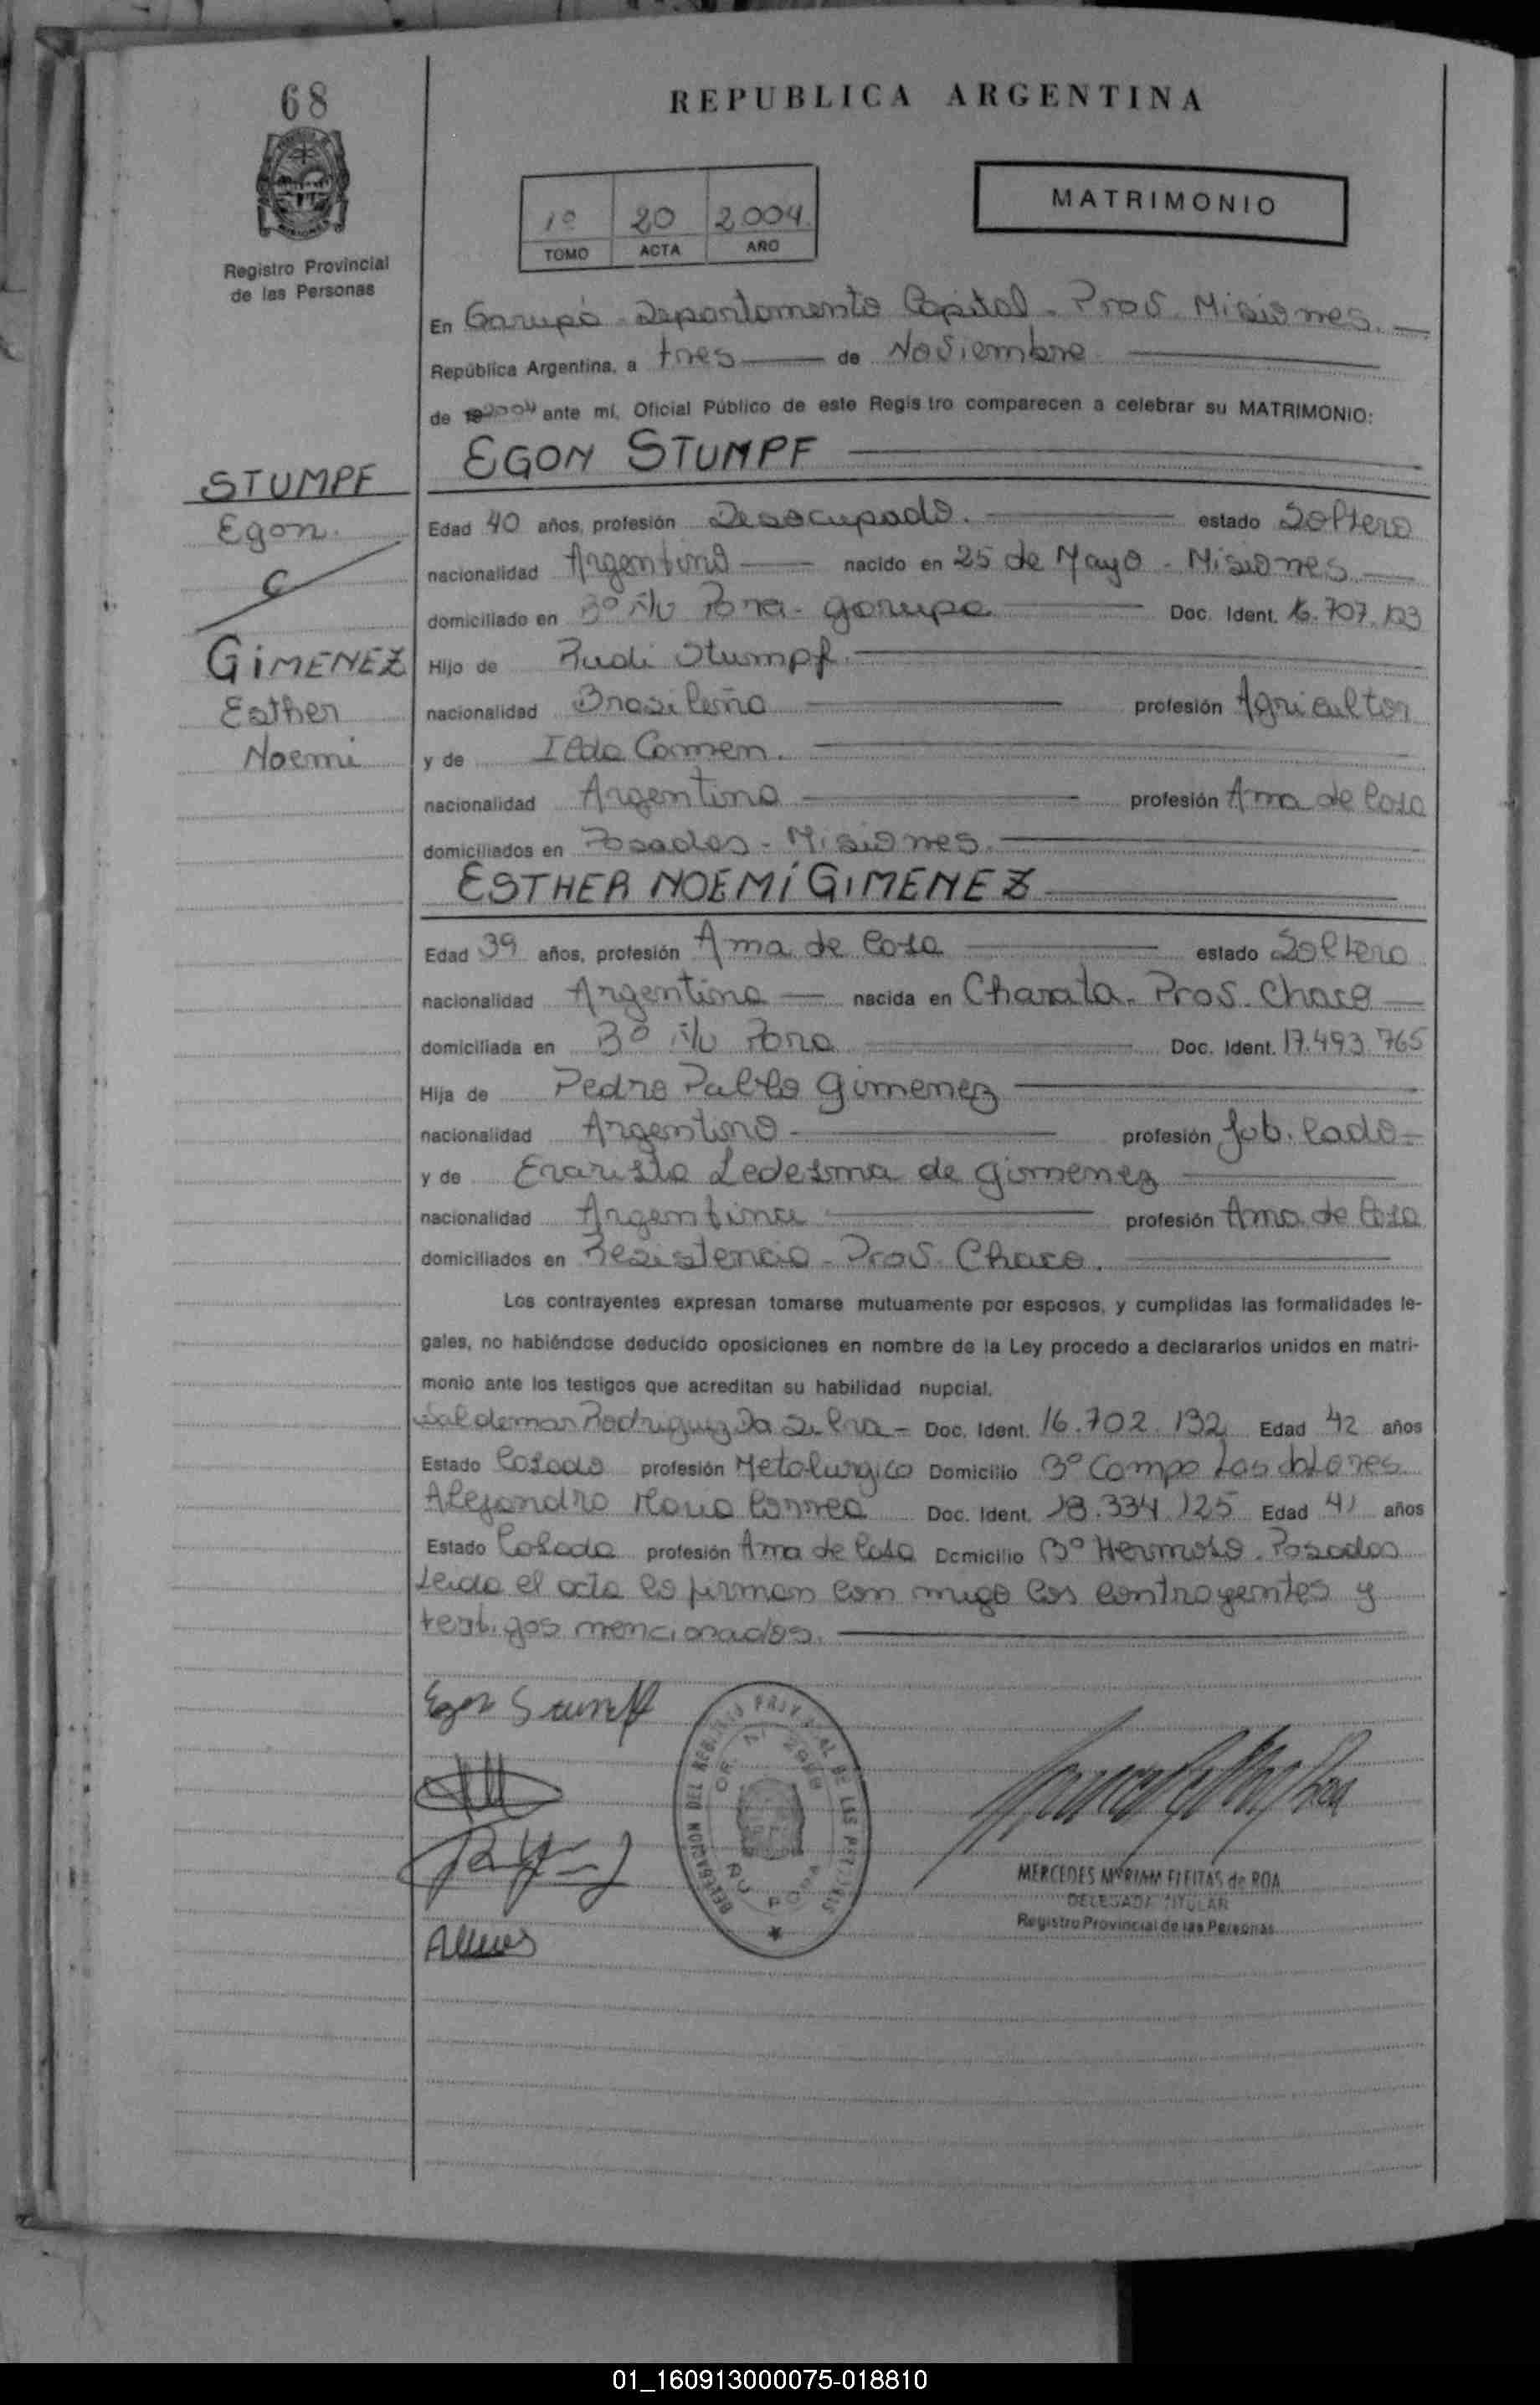 68
REPUBLICA ARGENTINA
1º 20 2.004.
TOMO ACTA AÑO
MATRIMONIO
Registro Provincial
de las Personas
En Garupá - Departamento Capital - Prov. Misiones.
República Argentina, a tres de Noviembre
de 2004 ante mí, Oficial Público de este Registro comparecen a celebrar su MATRIMONIO:
EGON STUMPF
STUMPF
Egon.
c
GIMENEZ
Esther
Noemi
Edad 40 años, profesión Desocupado. estado Soltero
nacionalidad Argentino nacido en 25 de Mayo - Misiones
domiciliado en Bº Ñu Pora - Garupa Doc. Ident. 16.707.123
Hijo de Rudi Stumpf.
nacionalidad Brasileño profesión Agricultor
y de Ilda Carmen.
nacionalidad Argentina profesión Ama de Casa
domiciliados en Posadas - Misiones.
ESTHER NOEMÍ GIMENEZ
Edad 39 años, profesión Ama de Casa estado Soltera
nacionalidad Argentina nacida en Charata - Prov. Chaco
domiciliada en Bº Ñu Pora Doc. Ident. 17.493.765
Hija de Pedro Pablo Gimenez
nacionalidad Argentino profesión Jubilado
y de Evarista Ledesma de Gimenez
nacionalidad Argentina profesión Ama de Casa
domiciliados en Resistencia - Prov. Chaco.
Los contrayentes expresan tomarse mutuamente por esposos, y cumplidas las formalidades le-
gales, no habiéndose deducido oposiciones en nombre de la Ley procedo a declararlos unidos en matri-
monio ante los testigos que acreditan su habilidad nupcial.
Waldemar Rodriguez Da Silva - Doc. Ident. 16.702.132 Edad 42 años
Estado Casado profesión Metalurgico Domicilio Bº Campo Las dolores
Alejandra Correa Doc. Ident. 18.334.125 Edad 41 años
Estado Casada profesión Ama de Casa Domicilio Bº Hermoso. Posadas
Leida el acta lo firman con migo los contrayentes y
testigos mencionados.
Egon Stumpf
DELEGACION DEL REGISTRO PROVINCIAL DE LAS PERSONAS
ÑU PORA
MERCEDES MYRIAM FLEITAS de ROA
DELEGADA TITULAR
Registro Provincial de las Personas
01_160913000075-018810